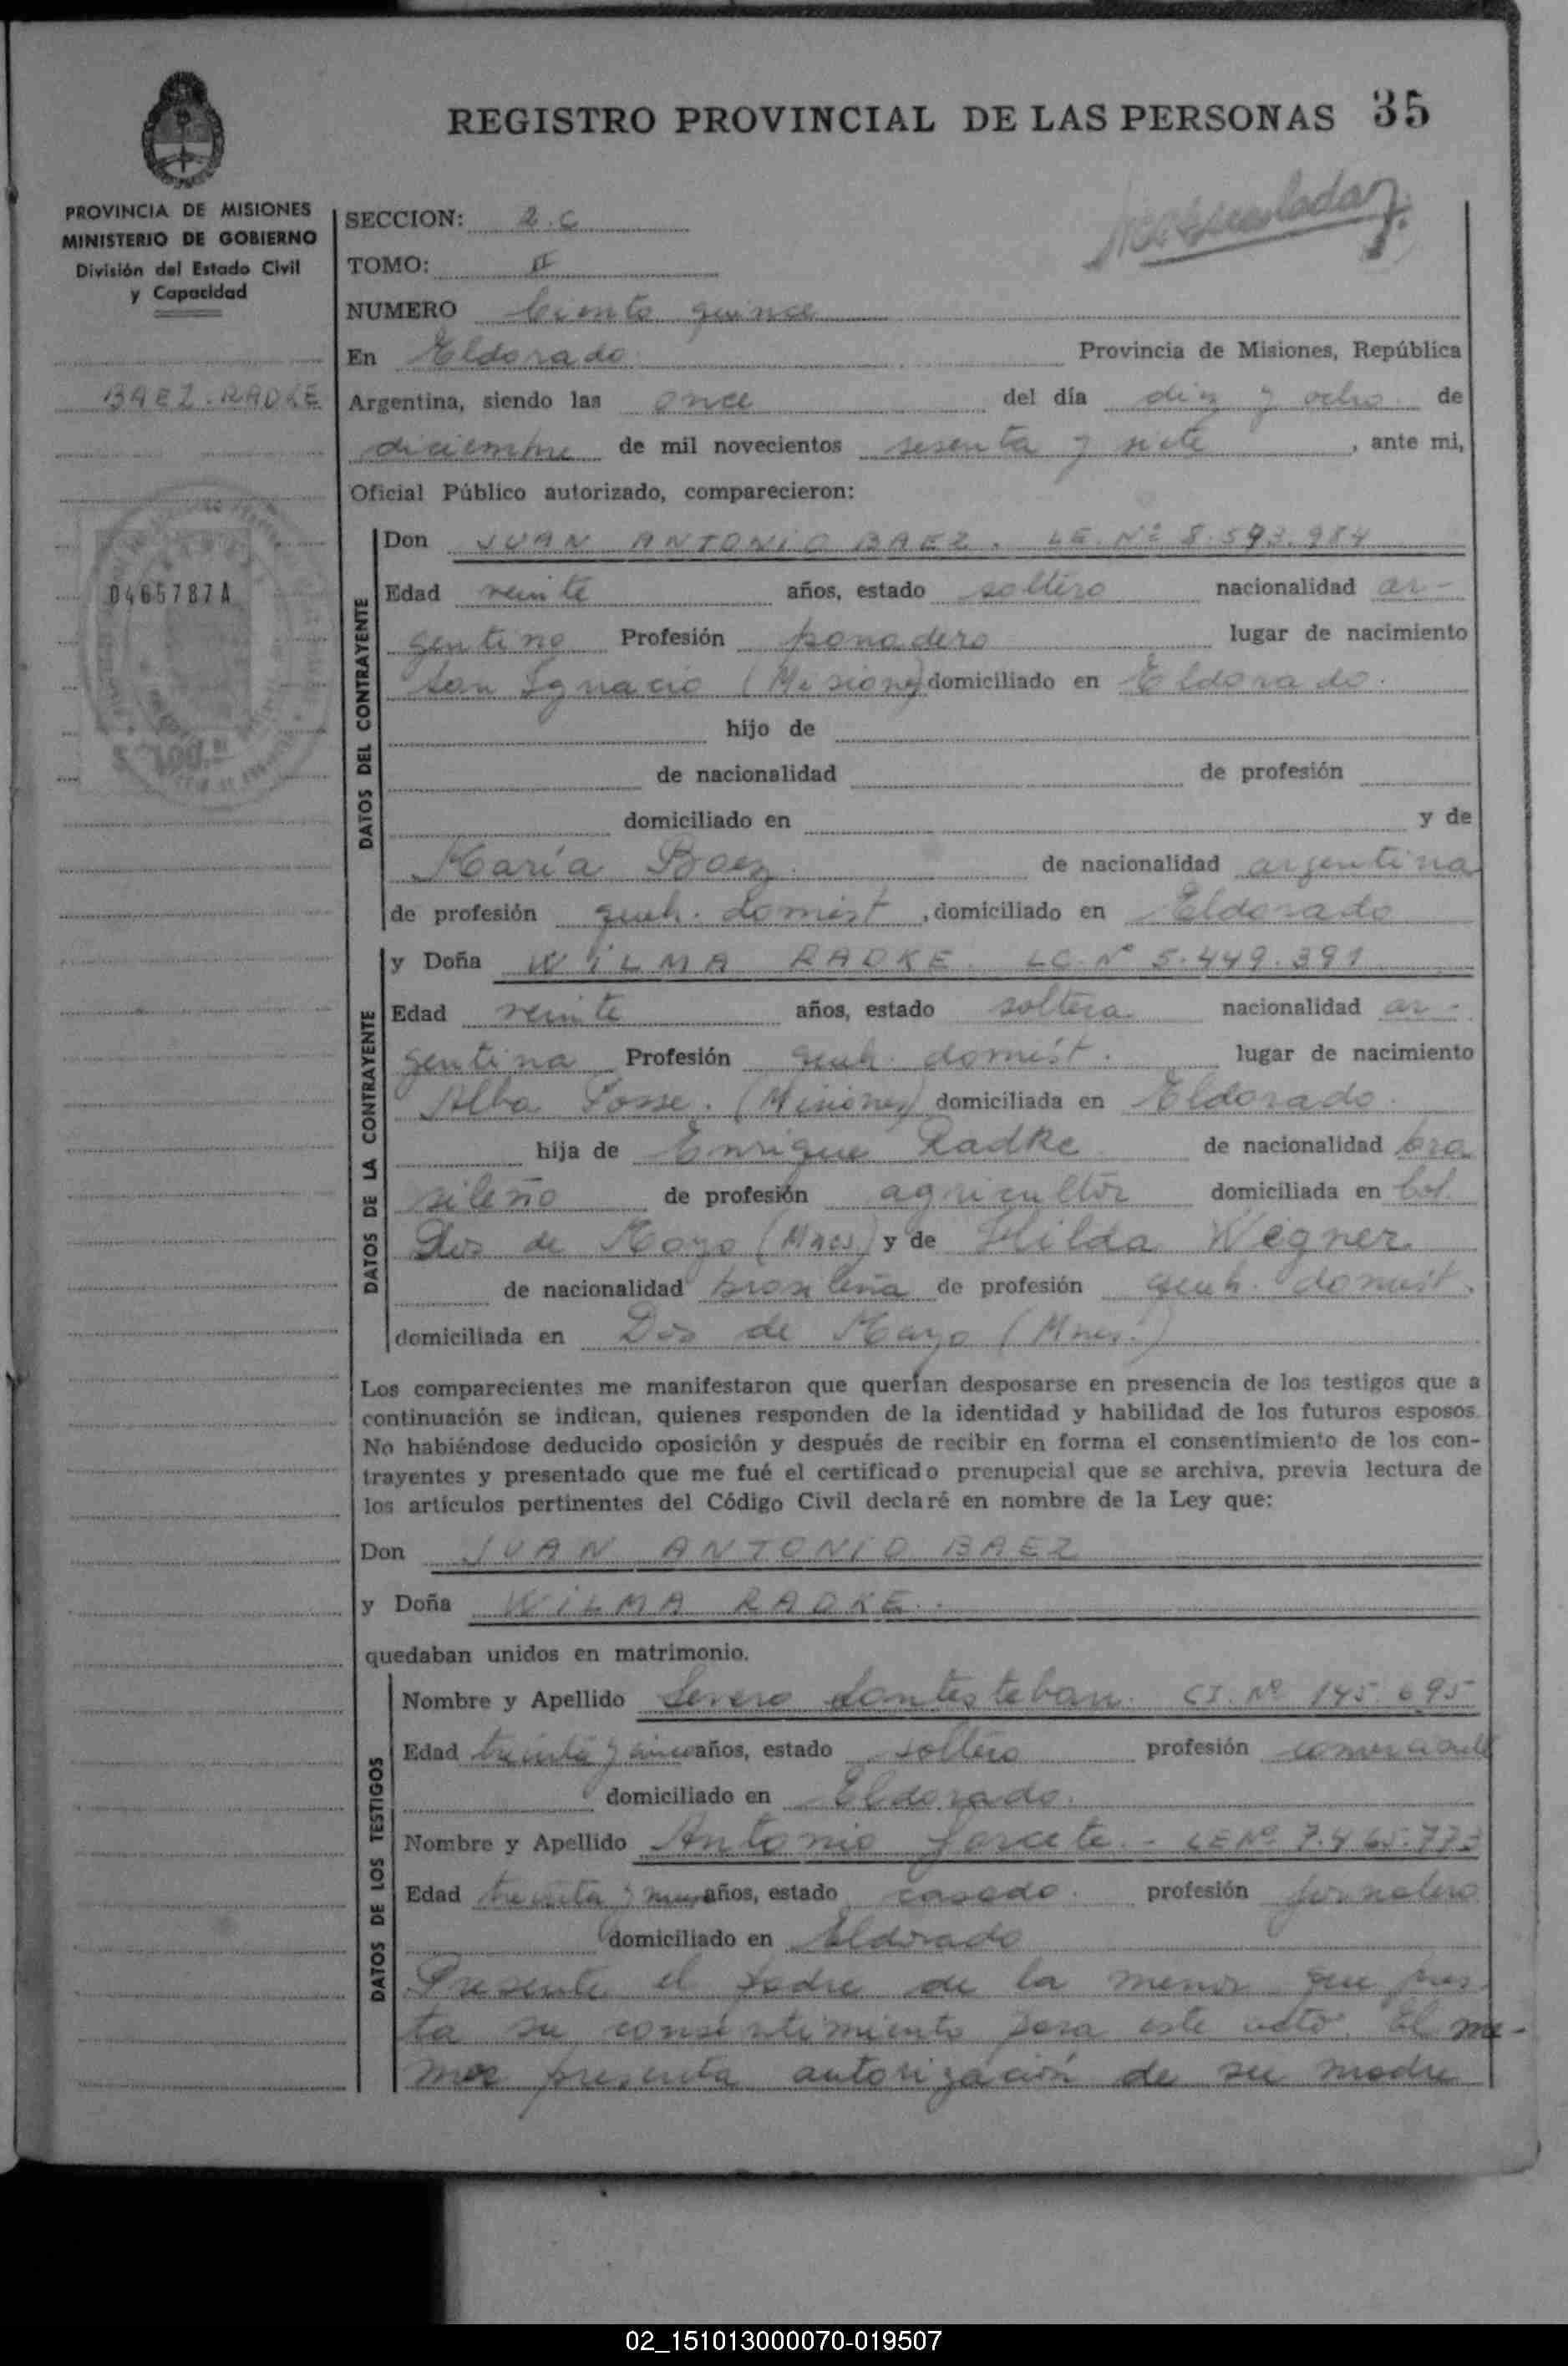 REGISTRO PROVINCIAL DE LAS PERSONAS 35
PROVINCIA DE MISIONES
MINISTERIO DE GOBIERNO
División del Estado Civil
y Capacidad
BAEZ-RADKE
0465787A
$ 100.-
SECCION: 2.C
TOMO: II
NUMERO Ciento quince
En Eldorado Provincia de Misiones, República
Argentina, siendo las once del día diez y ocho de
diciembre de mil novecientos sesenta y siete, ante mi,
Oficial Público autorizado, comparecieron:
DATOS DEL CONTRAYENTE
Don JUAN ANTONIO BAEZ. LE. Nº 8.593.984
Edad veinte años, estado soltero nacionalidad ar-
gentino Profesión panadero lugar de nacimiento
San Ignacio (Misiones) domiciliado en Eldorado.
hijo de
de nacionalidad de profesión
domiciliado en y de
María Baez. de nacionalidad argentina
de profesión queh. domést, domiciliado en Eldorado
DATOS DE LA CONTRAYENTE
y Doña WILMA RADKE. LC. Nº 5.449.391
Edad veinte años, estado soltera. nacionalidad ar-
gentina Profesión queh. domést. lugar de nacimiento
Alba Posse. (Misiones) domiciliada en Eldorado.
hija de Enrique Radke de nacionalidad bra
sileño de profesión agricultor domiciliada en Col.
Dos de Mayo (Mnes) y de Hilda Wegner
de nacionalidad brasileña de profesión queh. domést.
domiciliada en Dos de Mayo (Mnes.)
Los comparecientes me manifestaron que querían desposarse en presencia de los testigos que a
continuación se indican, quienes responden de la identidad y habilidad de los futuros esposos.
No habiéndose deducido oposición y después de recibir en forma el consentimiento de los con-
trayentes y presentado que me fué el certificado prenupcial que se archiva, previa lectura de
los artículos pertinentes del Código Civil declaré en nombre de la Ley que:
Don JUAN ANTONIO BAEZ
y Doña WILMA RADKE.
quedaban unidos en matrimonio.
DATOS DE LOS TESTIGOS
Nombre y Apellido Severo Santesteban. CI. Nº 145.695
Edad treinta y cinco años, estado soltero profesión comerciante
domiciliado en Eldorado.
Nombre y Apellido Antonio - LE Nº
Edad treinta y años, estado casado. profesión jornalero
domiciliado en Eldorado
Presente el padre de la menor que pres
ta su consentimiento para este acto. El me-
nor presenta autorización de su madre
02_151013000070-019507